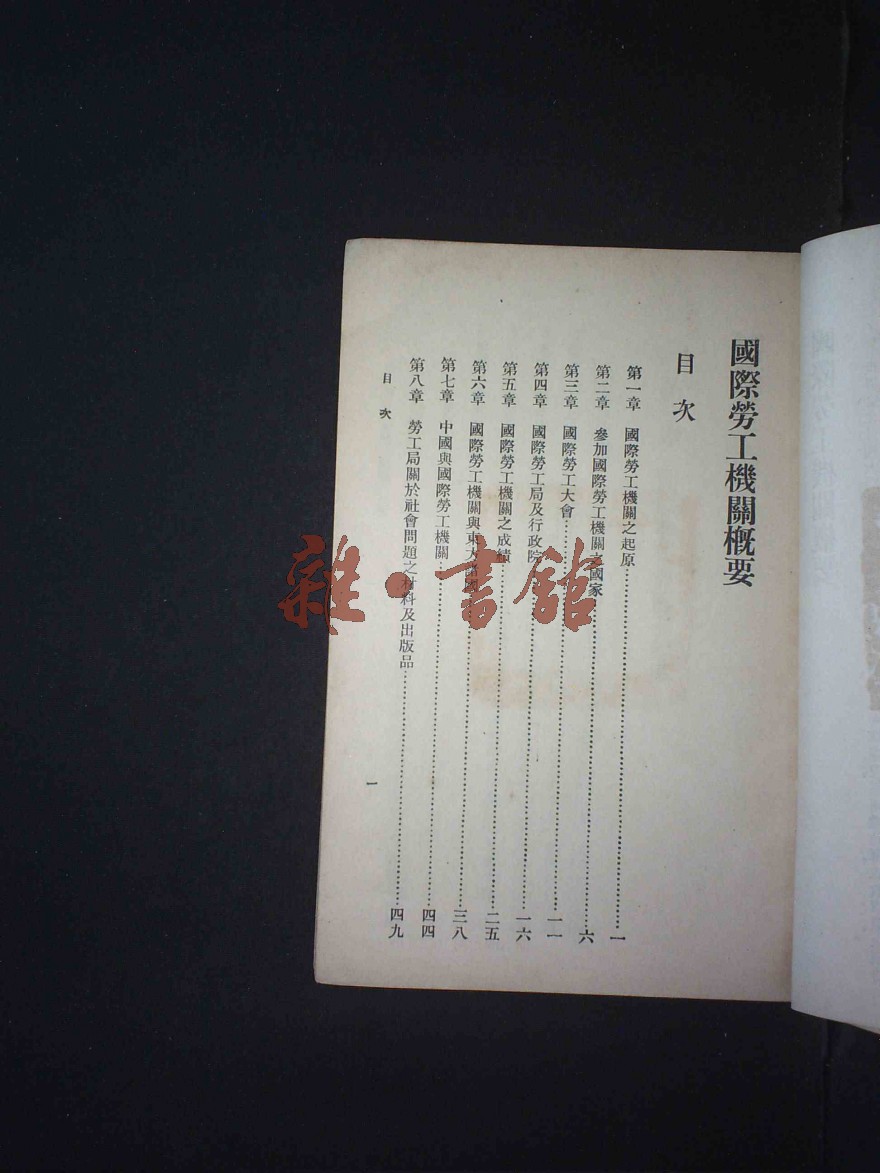 國際勞工機關槪要
目次
第一章 國際勞工機關之起原……一
第二章 參加國際勞工機關之國家……六
第三章 國際勞工大會……一一
第四章 國際勞工局及行政院……一六
第五章 國際勞工機關之成績……二五
第六章 國際勞工機關與東方諸國……三八
第七章 中國與國際勞工機關……四四
第八章 勞工局關於社會問題之材料及出版品……四九
目次
一
雜·書館